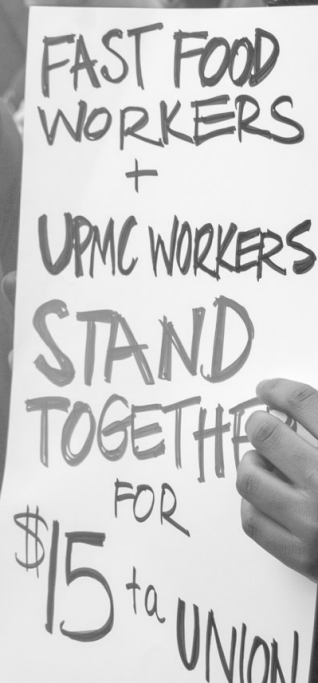 FAST FOOD
WORKERS
+
UPMC WORKERS
STAND
TOGETHE
FOR
$15 + a
UNION